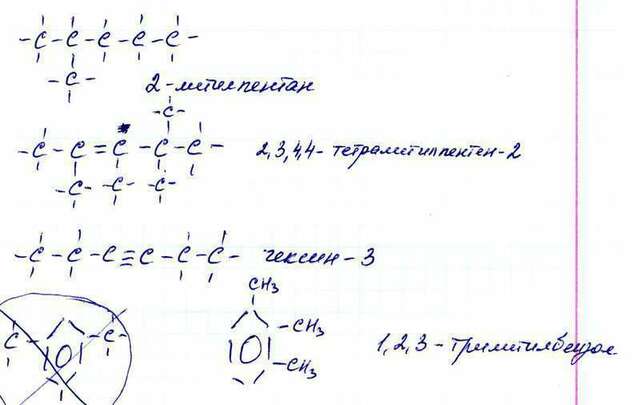 -C-C-C-C-C-
-C-
2-метилпентан
-C-
-C-C=C-C-C-
2,3,4,4-тетраметилпентен-2
-C- -C- -C-
-C-C-C≡C-C-C-
гексин-3
CH3
C- -C-
-CH3
-CH3
1,2,3-триметилбензол.